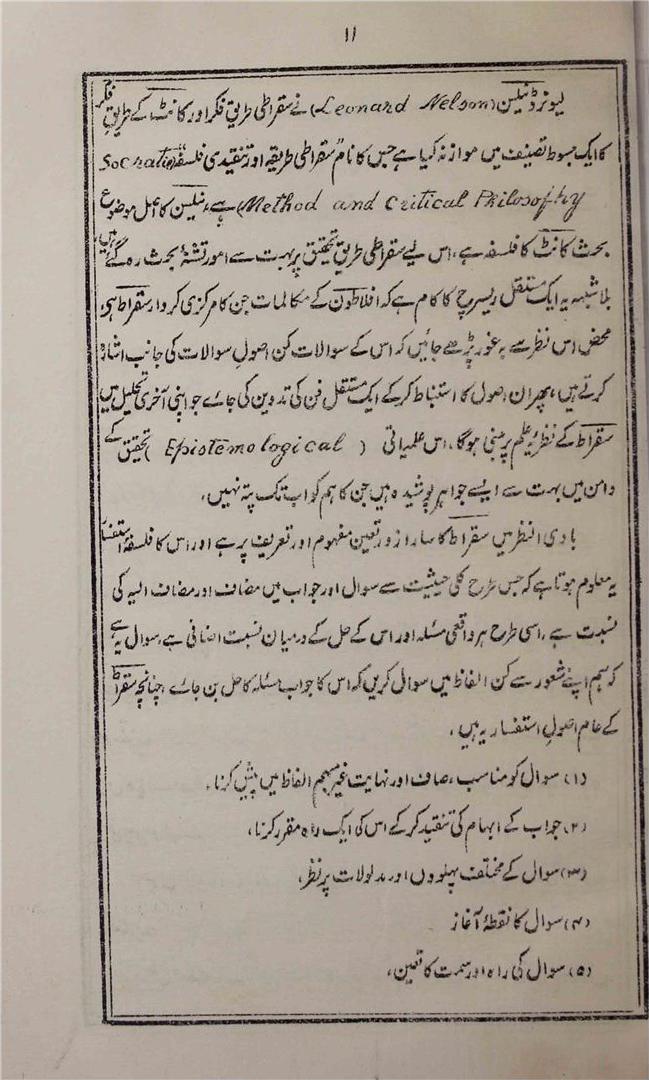 ۱۱
لیونرڈ نیلسن (Leonard Nelson) نے سقراطی طریقِ فکر اور کانٹ کے طریقِ فکر
کا ایک مبسوط تصنیف میں موازنہ کیا ہے جس کا نام "سقراطی طریقہ اور تنقیدی فلسفہ" (Socratic
Method and Critical Philosophy) ہے، نیلسن کا اصل موضوع
بحث کانٹ کا فلسفہ ہے، اس لیے سقراطی طریقِ تحقیق پر بہت سے امور تشنۂ بحث رہ گئے ہیں،
بلاشبہ یہ ایک مستقل ریسرچ کا کام ہے کہ افلاطون کے مکالمات جن کا مرکزی کردار سقراط ہی ہے
محض اس نظر سے بہ غور پڑھے جائیں کہ اس کے سوالات کن اصولِ سوالات کی جانب اشارہ
کرتے ہیں، پھر ان اصول کا استنباط کرکے ایک مستقل فن کی تدوین کی جائے جو اپنی آخری تحلیل میں
سقراط کے نظریۂ علم پر مبنی ہوگا، اس علمیاتی (Epistemological) تحقیق کے
دامن میں بہت سے ایسے جواہر پوشیدہ ہیں جن کا ہم کو اب تک پتہ نہیں،
بادی النظر میں سقراط کا سارا زور تعین مفہوم اور تعریف پر ہے اور اس کا فلسفۂ استفسار
یہ معلوم ہوتا ہے کہ جس طرح کلی حیثیت سے سوال اور جواب میں مضاف اور مضاف الیہ کی
نسبت ہے، اسی طرح ہر واقعی مسئلہ اور اس کے حل کے درمیان نسبت اضافی ہے، سوال یہ ہے
کہ ہم اپنے شعور سے کن الفاظ میں سوال کریں کہ اس کا جواب مسئلہ کا حل بن جائے، چنانچہ سقراط
کے عام اصولِ استفسار یہ ہیں،
(۱) سوال کو مناسب، صاف اور نہایت غیر مبہم الفاظ میں پیش کرنا۔
(۲) جواب کے ابہام کی تنقید کرکے اس کی ایک راہ مقرر کرنا،
(۳) سوال کے مختلف پہلووں اور مدلولات پر نظر،
(۴) سوال کا نقطۂ آغاز
(۵) سوال کی راہ اور سمت کا تعین،